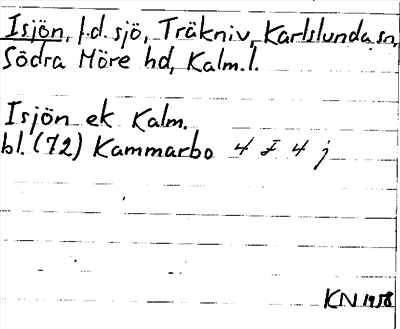 Isjön, f.d. sjö, Träkniv, Karlslunda sn,
Södra Möre hd, Kalm.l.
Isjön ek Kalm.
bl. (72) Kammarbo 4 F 4 j
KN 1958